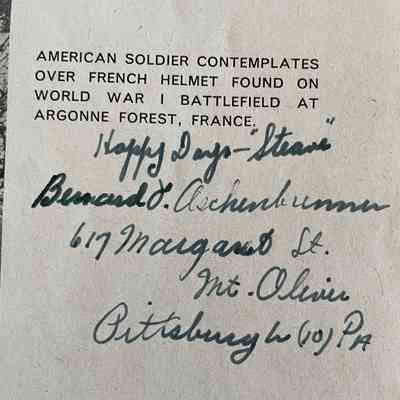 AMERICAN SOLDIER CONTEMPLATES
OVER FRENCH HELMET FOUND ON
WORLD WAR I BATTLEFIELD AT
ARGONNE FOREST, FRANCE.
Happy Days - "Steave"
Bernard J. Aschenbrenner
617 Margaret St.
Mt. Oliver
Pittsburgh (10) PA